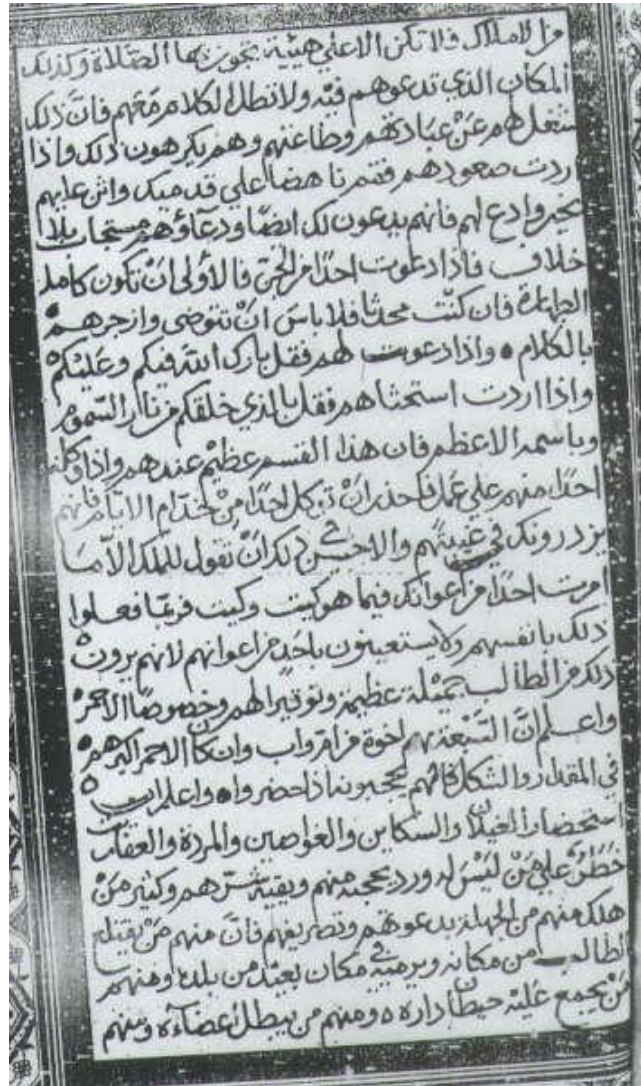 من الاملاك فلا تكن الا علي هيئة يجوز بها الصلاة وكذلك
المكان الذي تدعوهم فيه ولا تطل الكلام معهم فان ذلك
يشغلهم عن عبادتهم وطاعتهم وهم يكرهون ذلك واذا
اردت صعودهم فقم ناهضا علي قدميك واثن عليهم
بخير وادع لهم فانهم يدعون لك ايضا ودعاؤهم مستجاب بلا
خلاف فاذا دعوت احدا من الجن فالاولي ان تكون كامل
الطهارة فان كنت محدثا فلا باس ان تتوضى وازجرهم
بالكلام واذا دعوت لهم فقل بارك الله فيكم وعليكم
واذا اردت استحثاهم فقل بالذي خلقكم من نار السموم
وباسمه الاعظم فان هذا القسم عظيم عندهم واذا وكلت
احدا منهم علي عمل فاحذر ان توكل احدا من خدام الايام فانهم
يزدرونك في غيبتهم والاحسن في ذلك ان تقول للملك الا ما
امرت احدا من اعوانك فيما هو كيت وكيت فربما فعلوا
ذلك بانفسهم ولا يستعينون باحد من اعوانهم لانهم يرون
ذلك من الطالب عظيمة وتوقيرا لهم وخصوصا الاحمر
واعلم ان السبعة هم اخوة من ام واب وان كان الاحمر اكبرهم
في المقدار والشكل فانهم يحجبونه اذا حضروا واعلم ان
استحضار الغيلان والسكاين والغواصين والمردة والعفاريت
خطر علي من ليس له ورد يحجبه منهم ويقيه شرهم وكثير من
هلك منهم من الجهلة بدعوتهم وتصريفهم فان منهم من يقتلع
الطالب من مكانه ويرميه في مكان بعيد من بلده ومنهم
من يجمع عليه حيطان داره ومنهم من يبطل اعضاءه ومنهم